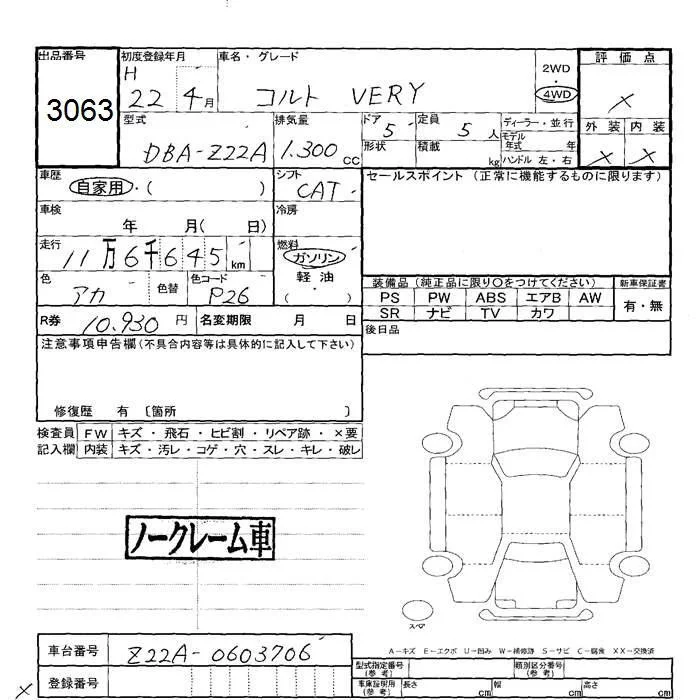 出品番号
3063
初度登録年月
H
22 4月
車名・グレード
コルト VERY
2WD
4WD
評価点
×
外装 内装
× ×
型式
DBA-Z22A
排気量
1.300 cc
ドア 5
形状
定員 5 人
積載 kg
ディーラー・並行
モデル
年式 年
ハンドル 左・右
車歴
自家用・( )
シフト
CAT
セールスポイント(正常に機能するものに限ります)
車検
年 月( 日)
冷房
走行
11万6千645 km
燃料
ガソリン
軽油
( )
色
アカ
色替
色コード
P26
装備品(純正品に限り○をつけてください)
新車保証書
PS PW ABS エアB AW
SR ナビ TV カワ
有・無
R券 10,930 円
名変期限 月 日
後日品
注意事項申告欄(不具合内容等は具体的に記入して下さい)
修復歴 有 〔箇所 〕
検査員 FW キズ・飛石・ヒビ割・リペア跡・×要
記入欄 内装 キズ・汚レ・コゲ・穴・スレ・キレ・破レ
ノークレーム車
スペア
A-キズ E-エクボ U-凹み W-補修跡 S-サビ C-腐食 XX-交換済
車台番号 Z22A-0603706
登録番号
×
型式指定番号
(参考)
類別区分番号
(参考)
車庫証明用
(参考)
長さ cm 幅 cm 高さ cm